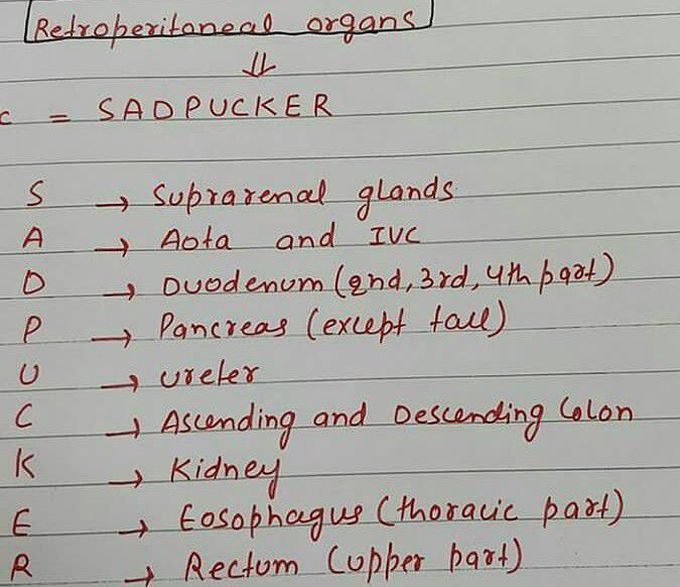 Retroperitoneal organs
⇓
c = SADPUCKER
S → Suprarenal glands
A → Aota and IVC
D → Duodenum (2nd, 3rd, 4th part)
P → Pancreas (except tail)
U → ureter
C → Ascending and Descending Colon
K → Kidney
E → Eosophagus (thoracic part)
R → Rectum (upper part)